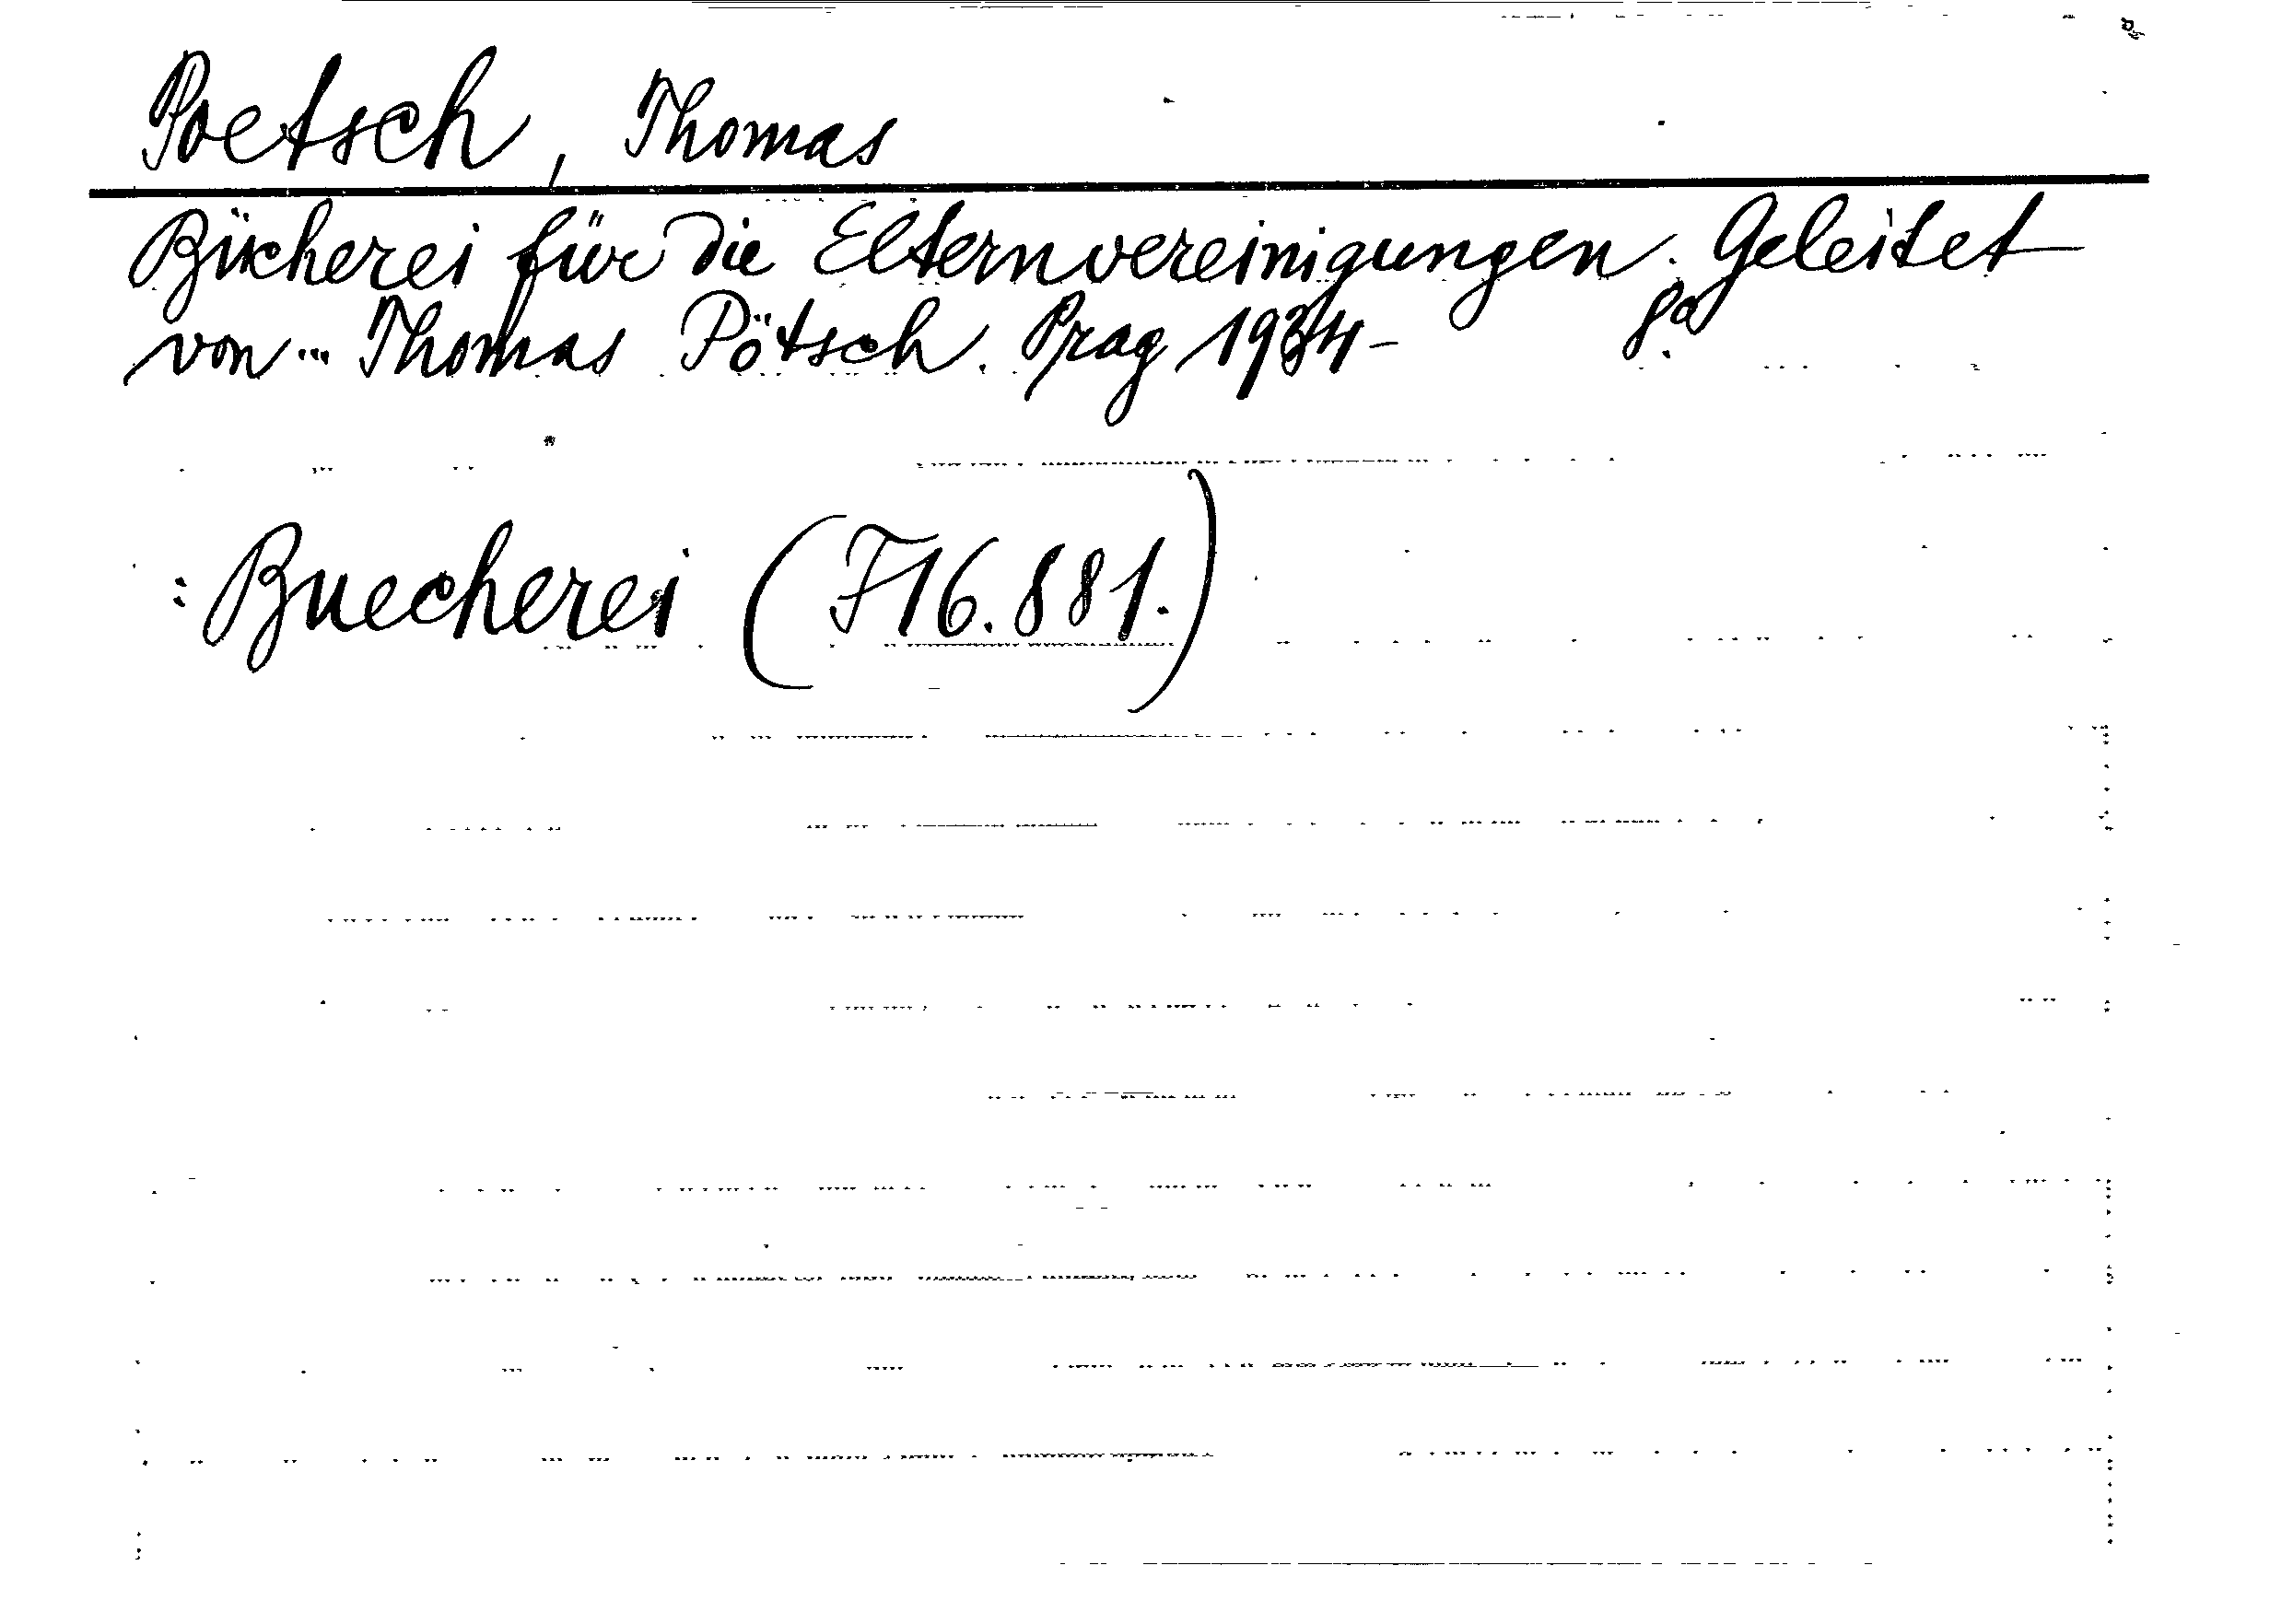 Poetsch, Thomas
Bücherei für die Elternvereinigungen. Geleitet
von ... Thomas Pötsch. Prag 1934- 8°.
: Buecherei (F16.881.)